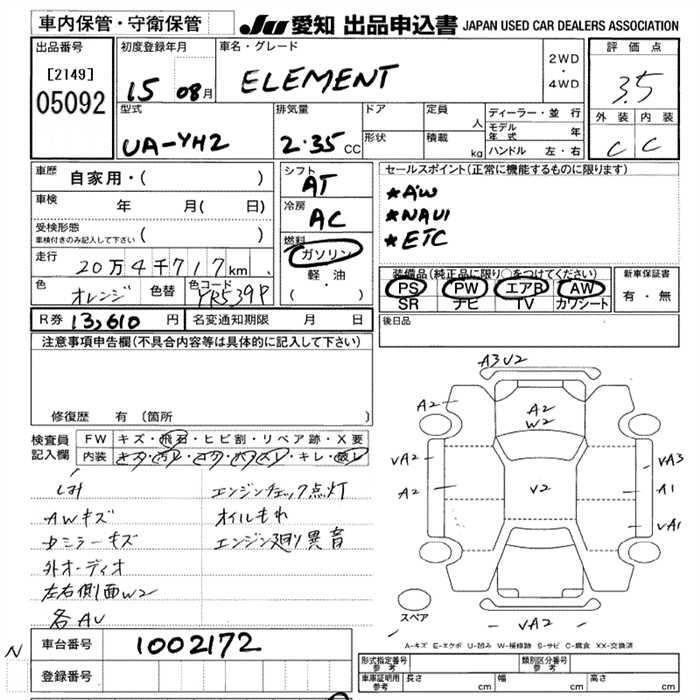 車内保管・守衛保管 JU 愛知 出品申込書 JAPAN USED CAR DEALERS ASSOCIATION
出品番号 [2149] 05092
初度登録年月 15 08月 車名・グレード ELEMENT 2WD・4WD
評価点 3.5
外装 内装
C C
型式 UA-YH2 排気量 2.35CC ドア 形状 定員 人 積載 kg
ディーラー・並行
モデル年式 年
ハンドル 左・右
車歴 自家用・( )
車検 年 月( 日)
受検形態 車検付きのみ記入して下さい ( )
走行 20万4千717km
色 オレンジ 色替 色コード YR539P
シフト AT
冷房 AC
燃料 ガソリン
軽油
( ・ )
セールスポイント(正常に機能するものに限ります)
★AW
★NAVI
★ETC
装備品(純正品に限り○をつけてください)
PS PW エアB AW
SR ナビ TV カワシート
新車保証書
有・無
後日品
R券 13,610円 名変通知期限 月 日
注意事項申告欄(不具合内容等は具体的に記入して下さい)
修復歴 有(箇所 )
検査員記入欄
FW キズ・飛石・ヒビ割・リペア跡・X要
内装 キズ・汚レ・コゲ・ハガレ・キレ・破レ
しみ エンジンチェック点灯
AWキズ オイルもれ
エンジン廻り異音
外オーディオ
左右側面W2
各AU
A3 V2
A2
A2
W2
VA2
VA3
A2
V2
A1
VA1
スペア
VA2
A-キズ E-エクボ U-凹み W-補修跡 S-サビ C-腐食 XX-交換済
N
車台番号 1002172
登録番号
形式指定番号 参考 類別区分番号 参考
車庫証明用 参考 長さ cm 幅 cm 高さ cm